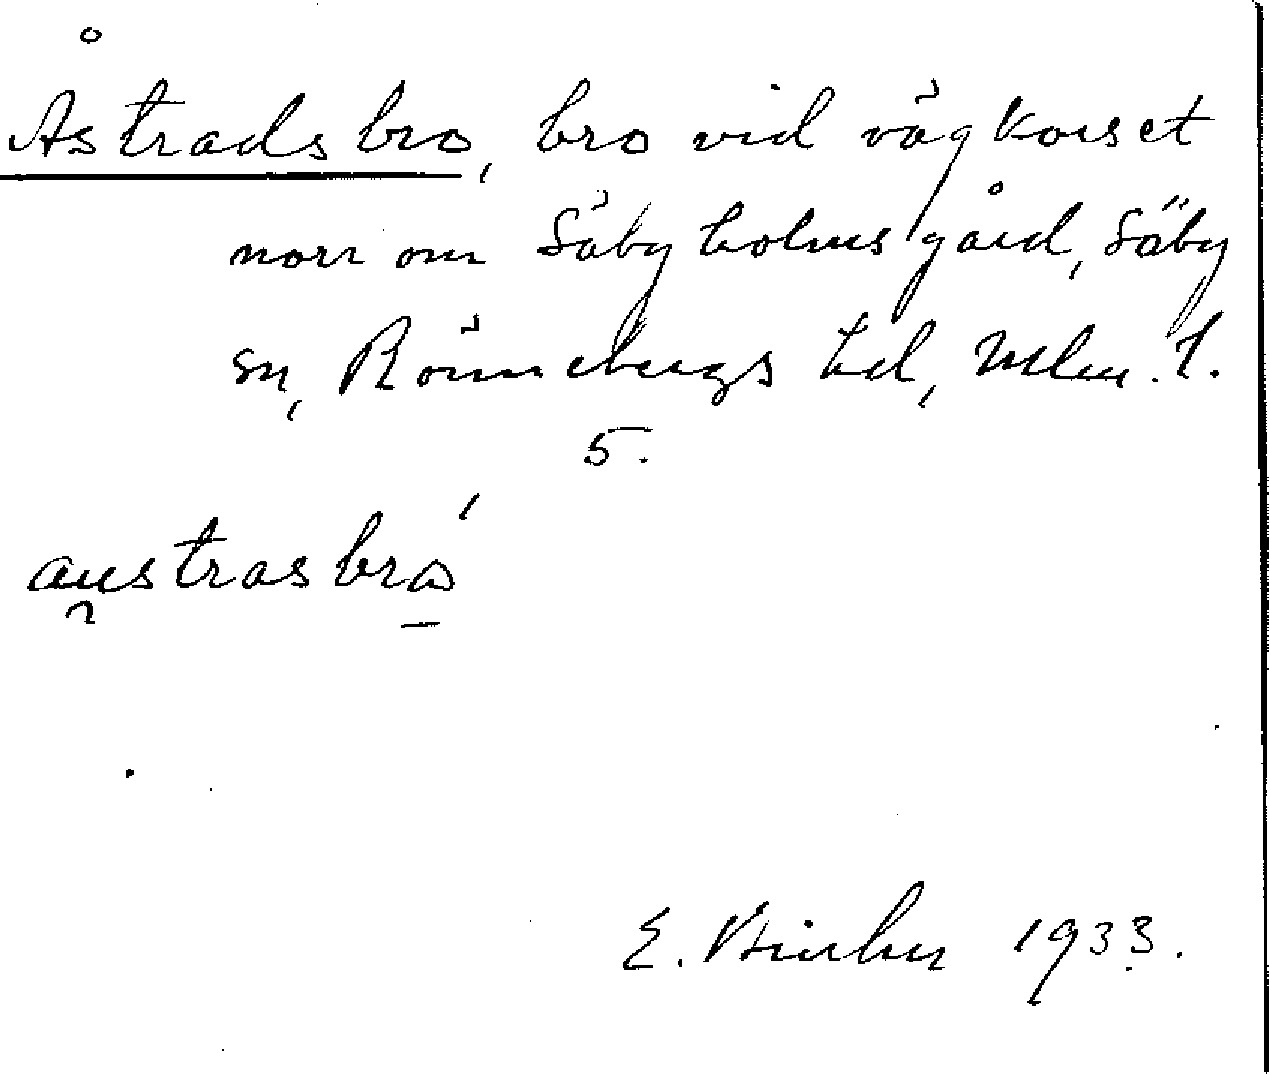 Åstradsbro, bro vid vägkorset
norr om Säbyholms gård, Säby
sn, Rönnebergs hd, Mlm. l.
5.
au̯strasbro̱´
E. 1933.